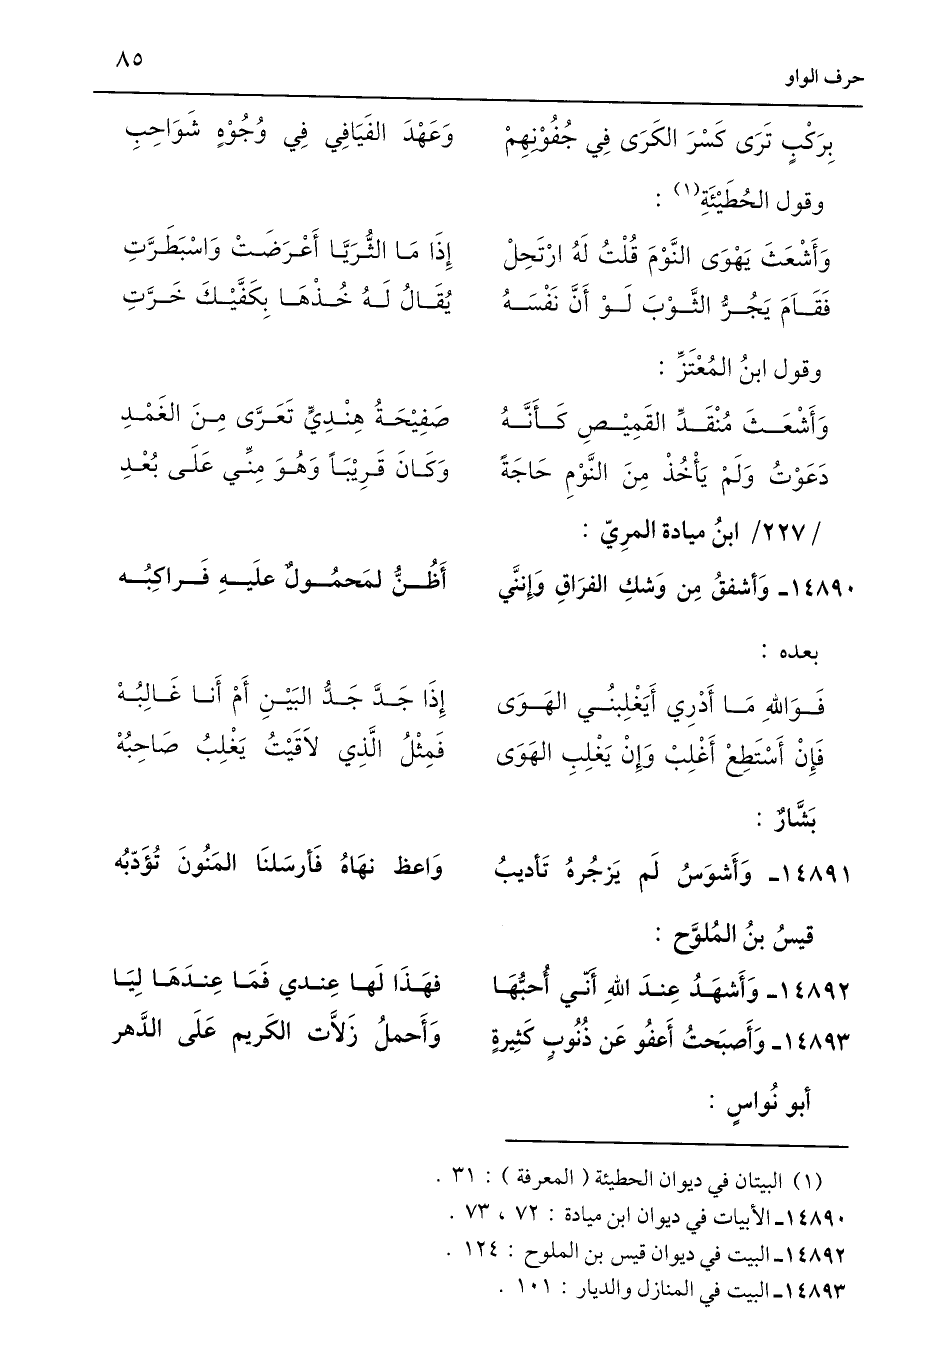 ٨٥
حرف الواو
بِرَكْبٍ تَرَى كَسْرَ الكَرَى فِي جُفُوْنِهِمْ وَعَهْدَ الفَيَافِي فِي وُجُوْهٍ شَوَاحِبِ
وقول الحُطَيْئَةِ(١) :
وَأَشْعَثَ يَهْوَى النَّوْمَ قُلْتُ لَهُ ارْتَحِلْ إِذَا مَا الثُّرَيَّا أَعْرَضَتْ وَاسْبَطَرَّتِ
فَقَامَ يَجُرُّ الثَّوْبَ لَوْ أَنَّ نَفْسَهُ يُقَالُ لَهُ خُذْهَا بِكَفَّيْكَ خَرَّتِ
وقول ابنُ المُعْتَزِّ :
وَأَشْعَثَ مُنْقَدِّ القَمِيْصِ كَأَنَّهُ صَفِيْحَةُ هِنْدِيٍّ تَعَرَّى مِنَ الغَمْدِ
دَعَوْتُ وَلَمْ يَأْخُذْ مِنَ النَّوْمِ حَاجَةً وَكَانَ قَرِيْبَاً وَهْوَ مِنِّي عَلَى بُعْدِ
/٢٢٧/ ابنُ ميادة المرِيّ :
١٤٨٩٠ـ وَأَشفقُ مِن وَشكِ الفرَاقِ وَإِننَّي أَظُنُّ لمَحمُولٌ علَيهِ فَراكِبُه
بعده :
فَوَاللهِ مَا أَدْرِي أَيَغْلِبنُي الهَوَى إِذَا جَدَّ جَدُّ البَيْنِ أَمْ أَنا غَالِبُهْ
فَإِنْ أَسْتَطِعْ أَغْلِبْ وَإِنْ يَغْلِبِ الهَوَى فَمِثْلُ الَّذِي لاَقَيْتُ يَغْلِبُ صَاحِبهُْ
بَشَّارٌ :
١٤٨٩١ـ وَأَشوَسُ لَم يَزجُرهُ تَأديبُ وَاعظ نهَاهُ فَأرسَلنَا المَنُونَ تُؤَدّبُه
قيسُ بنُ المُلوَّح :
١٤٨٩٢ـ وَأَشهَدُ عِندَ اللهِ أَنّي أُحبُّهَا فهَذَا لَها عِندي فَمَا عِندَهَا ليَا
١٤٨٩٣ـ وَأَصبَحتُ أَعفُو عَن ذُنُوبٍ كَثِيرةٍ وَأَحملُ زَلاَّت الكَريم عَلَى الدَّهر
أبو نُواسٍ :
(١) البيتان في ديوان الحطيئة ( المعرفة ) : ٣١ .
١٤٨٩٠ـ الأبيات في ديوان ابن ميادة : ٧٢ ، ٧٣ .
١٤٨٩٢ـ البيت في ديوان قيس بن الملوح : ١٢٤ .
١٤٨٩٣ـ البيت في المنازل والديار : ١٠١ .